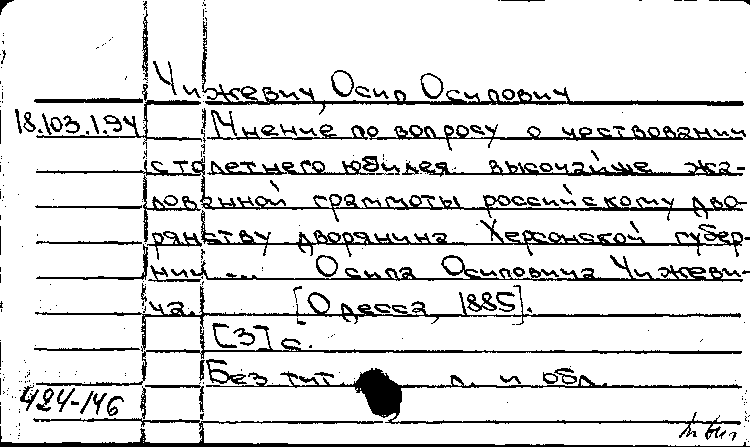 Чижевич, Осип Осипович
18.103.1.94 Мнение по вопросу о чествовании
столетнего юбилея высочайше жа-
лованной грамоты российскому дво-
рянству дворянина Херсонской губер-
нии ... Осипа Осиповича Чижеви-
ча. [Одесса, 1885].
[3] с.
Без тит. л. и обл.
424-146